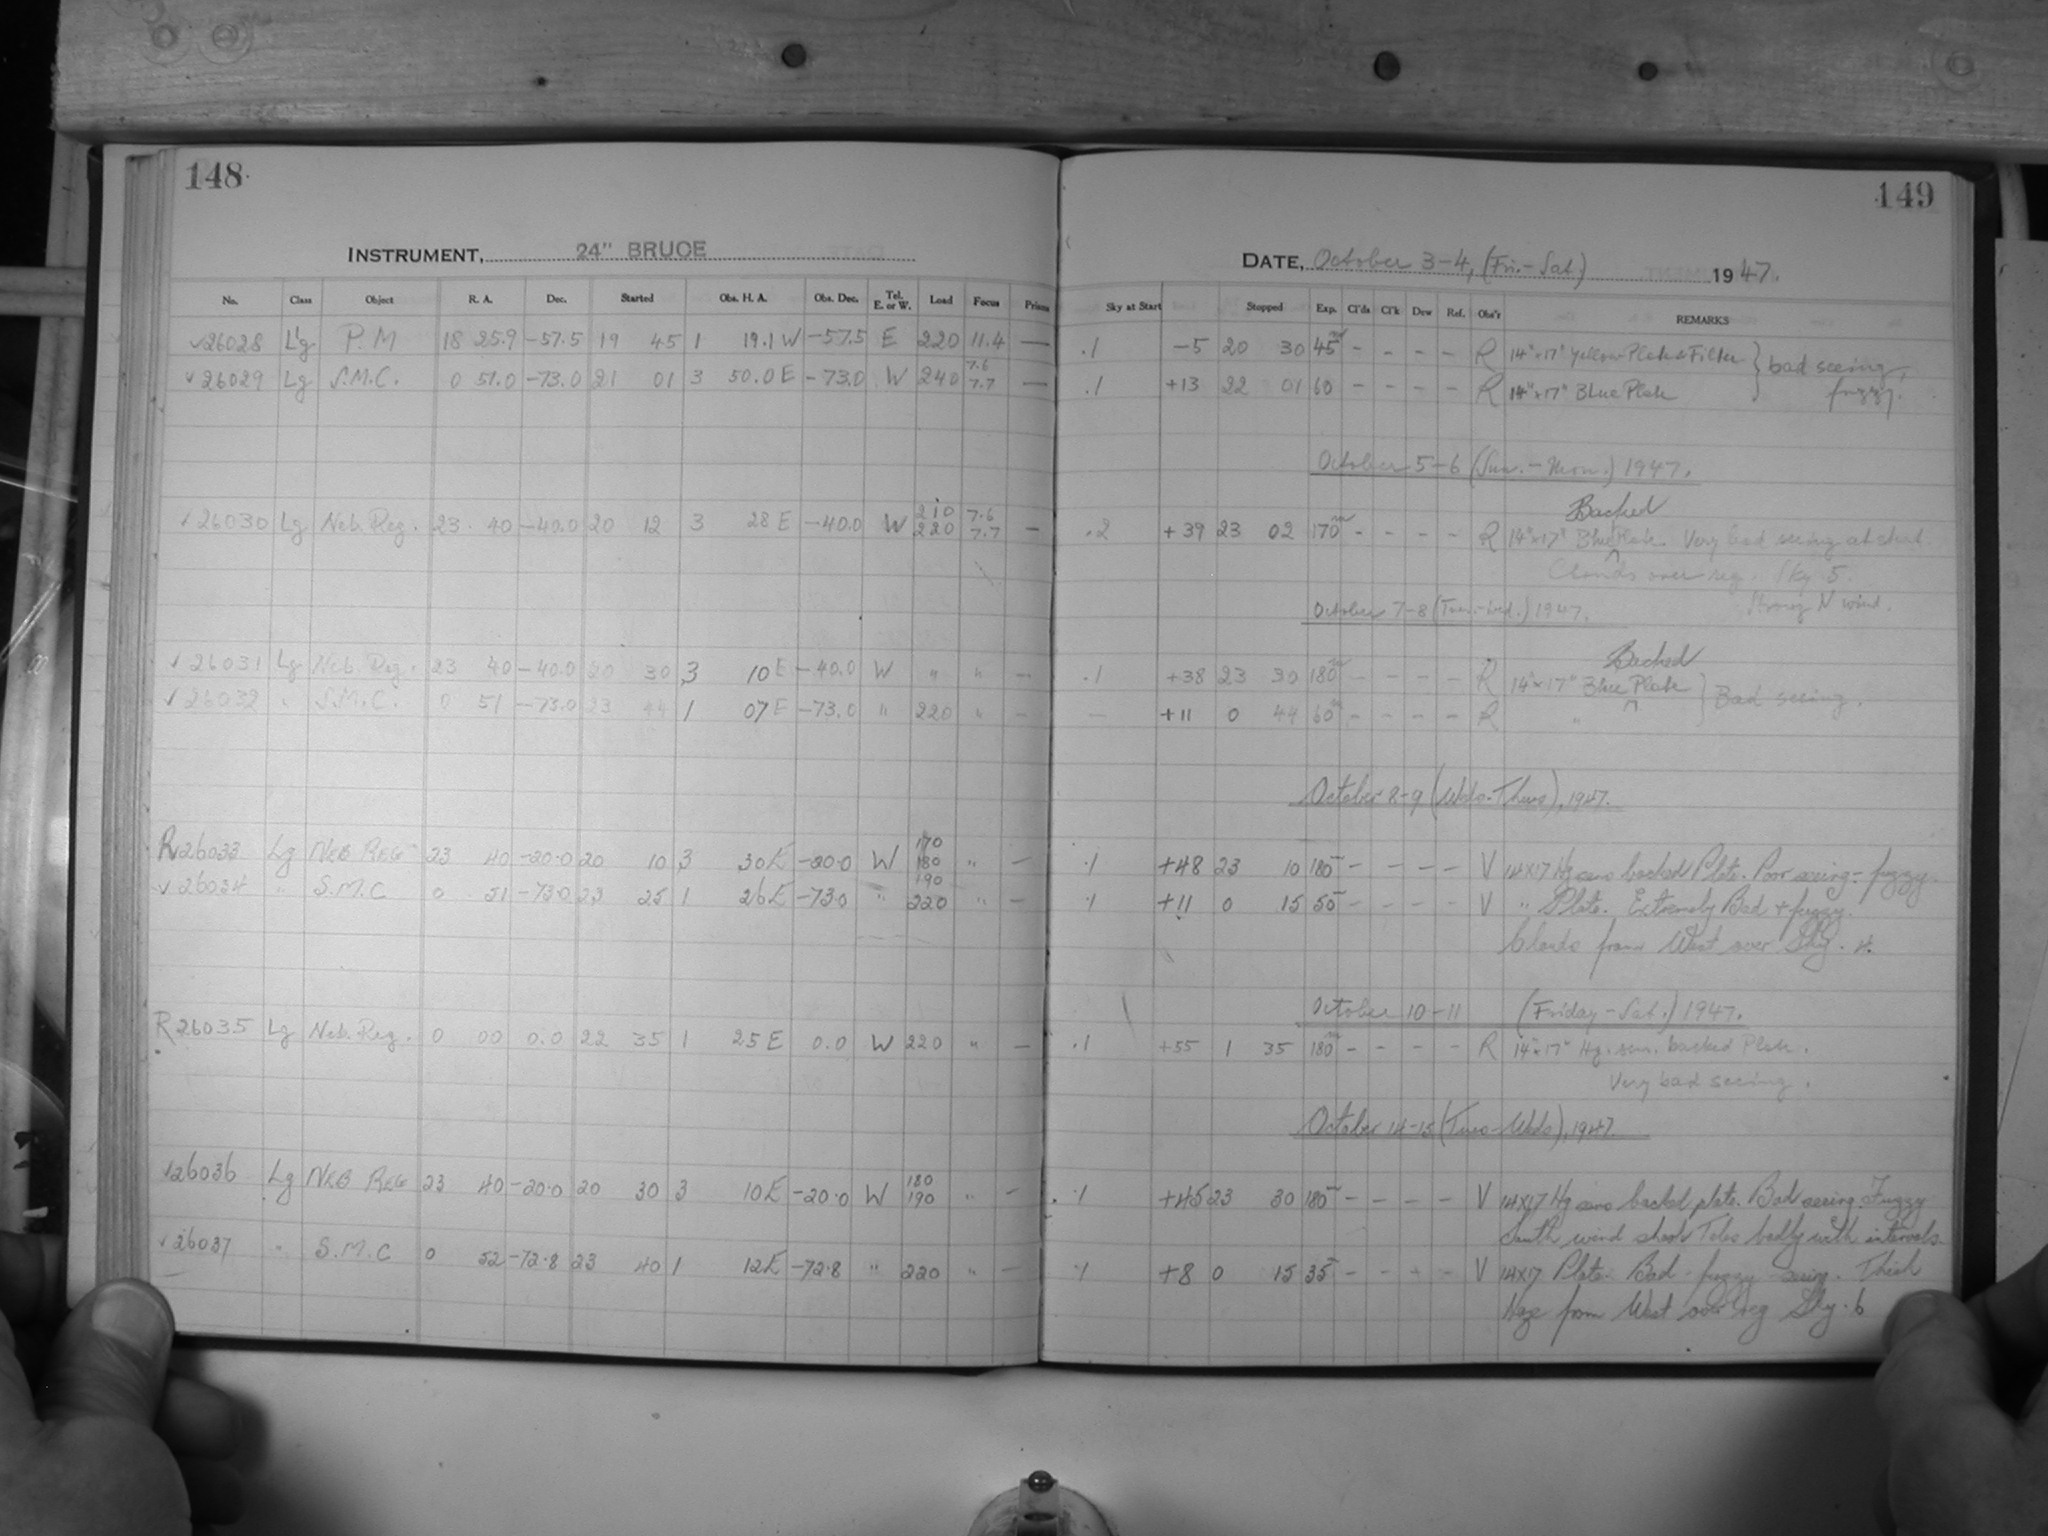 148.
149
INSTRUMENT, 24" BRUCE
DATE, October 3-4, (Fri.-Sat.) 1947.
No. Class Object R. A. Dec. Started Obs. H. A. Obs. Dec. Tel. E. or W. Load Focus Prisms Sky at Start Stopped Exp. Cl'ds Cl'k Dew Ref. Obs'r REMARKS
√26028 Lg P.M 18 25.9 -57.5 19 45 1 19.1 W -57.5 E 220 11.4 — .1 -5 20 30 45m - - - - R 14"x17" Yellow Plate & Filter } bad seeing,
√26029 Lg S.M.C. 0 51.0 -73.0 21 01 3 50.0 E -73.0 W 240 7.6 7.7 — .1 +13 22 01 60 - - - - R 14"x17" Blue Plate fuzzy.
October 5-6 (Sun.-Mon.) 1947.
√26030 Lg Neb. Reg. 23 40 -40.0 20 12 3 28 E -40.0 W 210 220 7.6 7.7 — .2 +39 23 02 170m - - - - R 14"x17" Blue Backed Plate. Very bad seeing at start.
Clouds over reg. Sky 5.
Strong N wind.
October 7-8 (Tues.-Wed.) 1947.
√26031 Lg Neb. Reg. 23 40 -40.0 20 30 3 10 E -40.0 W " " — .1 +38 23 30 180m - - - - R 14"x17" Blue Backed Plate } Bad seeing.
√26032 " S.M.C. 0 51 -73.0 23 44 1 07 E -73.0 " 220 " — — +11 0 44 60m - - - - R "
October 8-9 (Weds-Thurs), 1947.
R26033 Lg NEB REG 23 40 -20.0 20 10 3 30 E -20.0 W 170 180 190 " — .1 +48 23 10 180m - - - - V 14x17 Hg sens backed Plate. Poor seeing - fuzzy.
√26034 " S.M.C 0 51 -73.0 23 25 1 26 E -73.0 " 220 " — .1 +11 0 15 50m - - - - V " Plate. Extremely Bad + fuzzy.
Clouds from West over Sky. 4.
October 10-11 (Friday-Sat.) 1947.
R26035 Lg Neb. Reg. 0 00 0.0 22 35 1 25 E 0.0 W 220 " — .1 +55 1 35 180m - - - - R 14"x17" Hg. sen. backed Plate.
Very bad seeing.
October 14-15 (Tues-Weds), 1947.
√26036 Lg NEB REG 23 40 -20.0 20 30 3 10 E -20.0 W 180 190 " — .1 +45 23 30 180m - - - - V 14x17 Hg sens backed plate. Bad seeing. Fuzzy
South wind shook Teles badly with intervals.
√26037 " S.M.C 0 52 -72.8 23 40 1 12 E -72.8 " 220 " — .1 +8 0 15 35m - - - - V 14x17 Plate. Bad - fuzzy seeing. Thick
Haze from West over reg Sky. 6